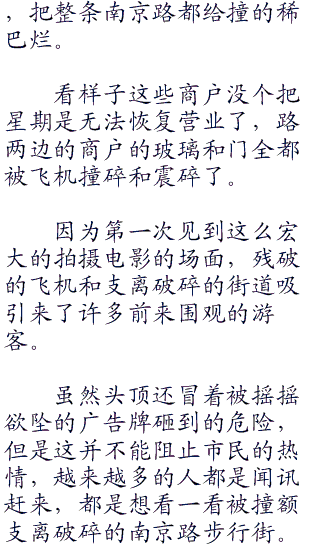 ，把整条南京路都给撞的稀
巴烂。
看样子这些商户没个把
星期是无法恢复营业了，路
两边的商户的玻璃和门全都
被飞机撞碎和震碎了。
因为第一次见到这么宏
大的拍摄电影的场面，残破
的飞机和支离破碎的街道吸
引来了许多前来围观的游
客。
虽然头顶还冒着被摇摇
欲坠的广告牌砸到的危险，
但是这并不能阻止市民的热
情，越来越多的人都是闻讯
赶来，都是想看一看被撞额
支离破碎的南京路步行街。